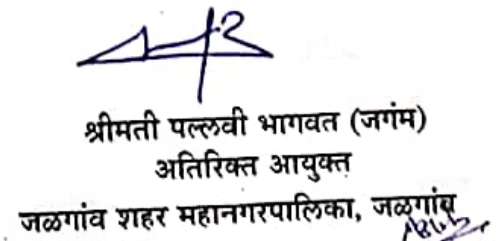 श्रीमती पल्लवी भागवत (जगंम)
अतिरिक्त आयुक्त
जळगांव शहर महानगरपालिका, जळगांव